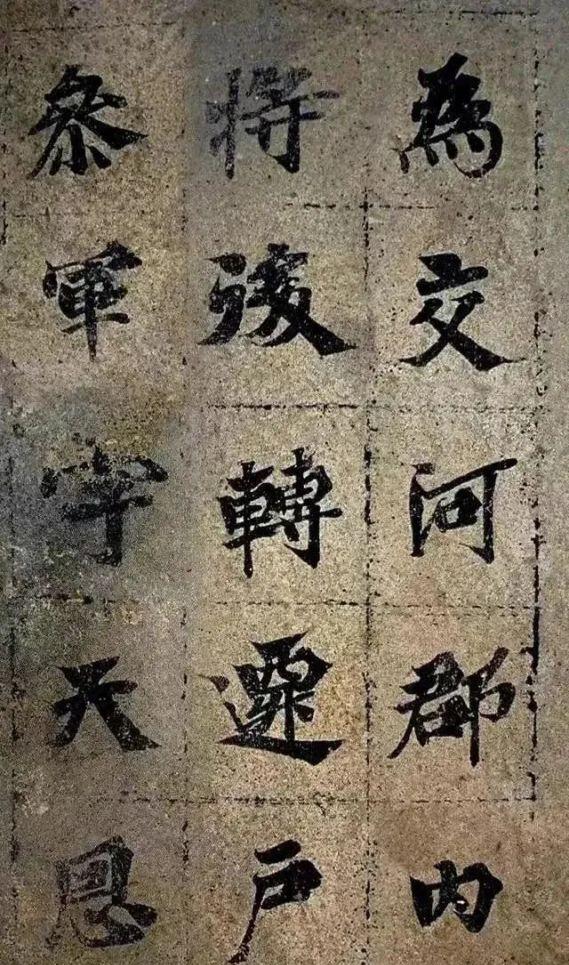 為交河郡内
將後轉遷户
參軍字天恩